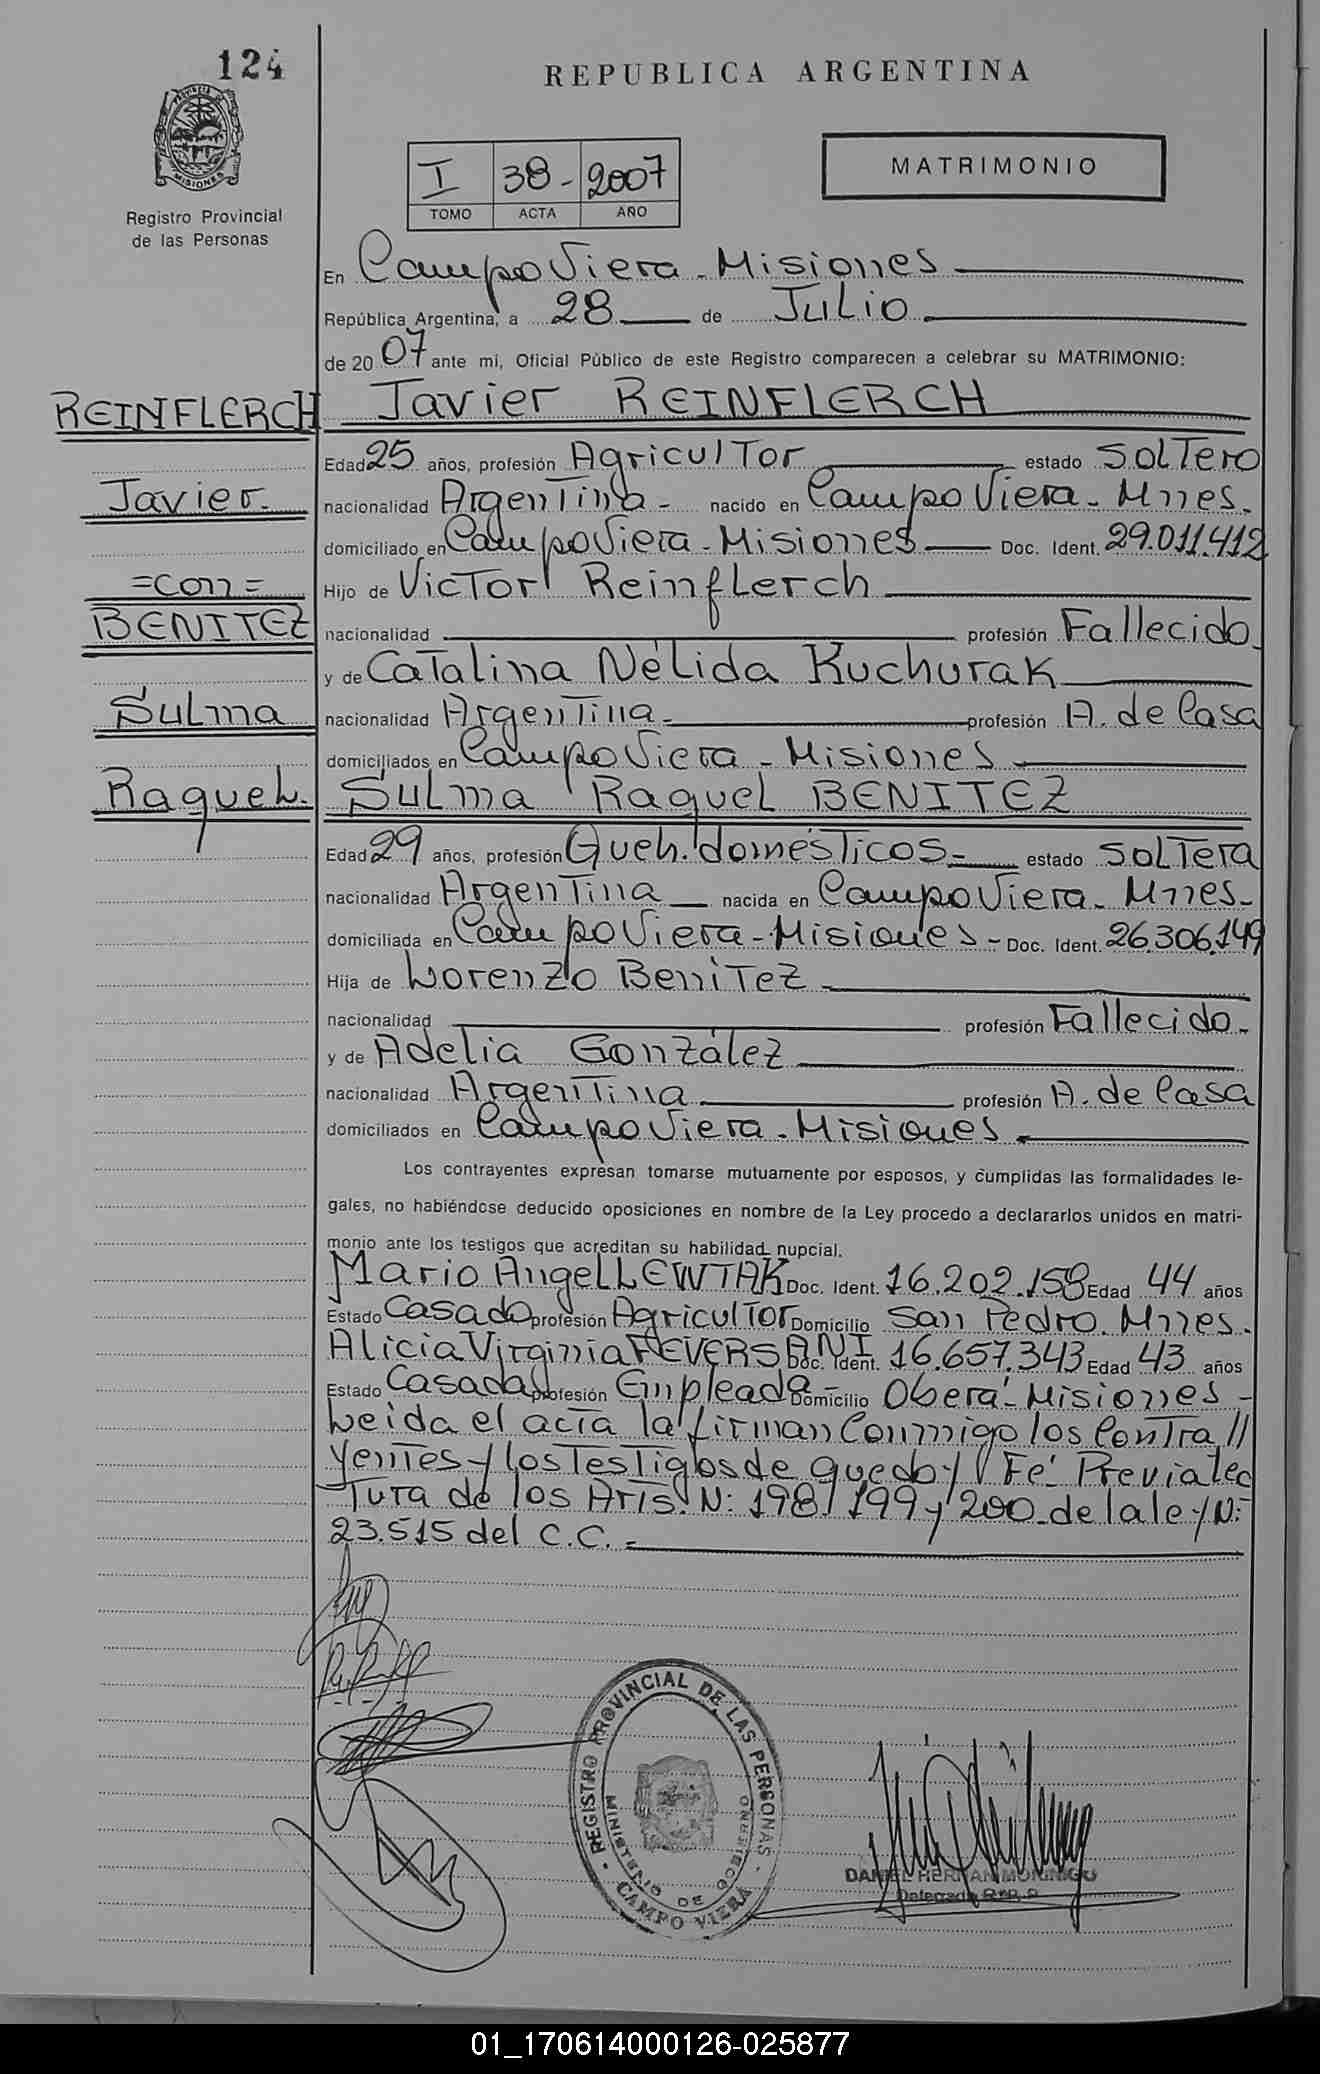 124
REPUBLICA ARGENTINA
PROVINCIA DE MISIONES
Registro Provincial
de las Personas
I 38- 2007
TOMO ACTA AÑO
MATRIMONIO
En Campo Viera - Misiones
República Argentina, a 28 de Julio
de 20 07 ante mi, Oficial Público de este Registro comparecen a celebrar su MATRIMONIO:
REINFLERCH Javier REINFLERCH
Edad 25 años, profesión Agricultor estado Soltero
Javier. nacionalidad Argentina - nacido en Campo Viera - Mnes.
domiciliado en Campo Viera - Misiones Doc. Ident. 29.011.412
=con= Hijo de Victor Reinflerch
BENITEZ nacionalidad profesión Fallecido
y de Catalina Nélida Kuchurak
Sulma nacionalidad Argentina - profesión A. de Casa
domiciliados en Campo Viera - Misiones
Raquel. Sulma Raquel BENITEZ
Edad 29 años, profesión Queh. domésticos - estado Soltera
nacionalidad Argentina nacida en Campo Viera - Mnes -
domiciliada en Campo Viera - Misiones - Doc. Ident. 26.306.149
Hija de Lorenzo Benitez
nacionalidad profesión Fallecido -
y de Adelia González
nacionalidad Argentina profesión A. de Casa
domiciliados en Campo Viera - Misiones
Los contrayentes expresan tomarse mutuamente por esposos, y cumplidas las formalidades le-
gales, no habiéndose deducido oposiciones en nombre de la Ley procedo a declararlos unidos en matri-
monio ante los testigos que acreditan su habilidad nupcial.
Mario Angel LEWTAK Doc. Ident. 16.202.158 Edad 44 años
Estado Casado profesión Agricultor Domicilio San Pedro. Mnes.
Alicia Virginia Doc. Ident. 16.657.343 Edad 43 años
Estado Casada profesión Empleada Domicilio Oberá - Misiones -
Leida el acta la firman Conmigo los Contra//
yentes y los Testigos de que doy Fé. Previa lec
tura de los Arts. N: 198, 199 y 200 - de la ley N:
23.515 del C.C. -
REGISTRO PROVINCIAL DE LAS PERSONAS
MINISTERIO DE GOBIERNO
CAMPO VIERA
DANIEL HERNAN MORINIGO
Delegado R.P.P.
01_170614000126-025877